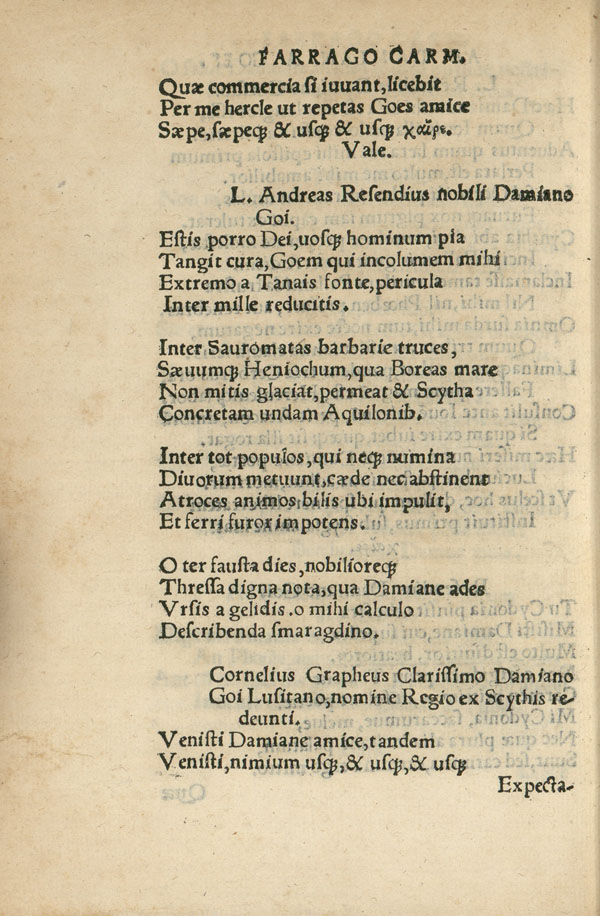 FARRAGO CARM.
Quæ commercia si iuuant, licebit
Per me hercle ut repetas Goes amice
Sæpe, sæpeq́; & usq́; & usq́; χαῖρε.
Vale.
L. Andreas Resendius nobili Damiano
Goi.
Estis porro Dei, uosq́; hominum pia
Tangit cura, Goem qui incolumem mihi
Extremo a Tanais fonte, pericula
Inter mille reducitis.
Inter Sauromatas barbarie truces,
Sæuumq́; Heniochum, qua Boreas mare
Non mitis glaciat, permeat & Scytha
Concretam undam Aquilonib.
Inter tot populos, qui neq́; numina
Diuorum metuunt, cæde nec abstinent
Atroces animos bilis ubi impulit,
Et ferri furor impotens.
O ter fausta dies, nobilioreq́;
Thressa digna nota, qua Damiane ades
Vrsis a gelidis. o mihi calculo
Describenda smaragdino.
Cornelius Grapheus Clarissimo Damiano
Goi Lusitano, nomine Regio ex Scythis re-
deunti.
Venisti Damiane amice, tandem
Venisti, nimium usq́;, & usq́;, & usq́;
Expecta-